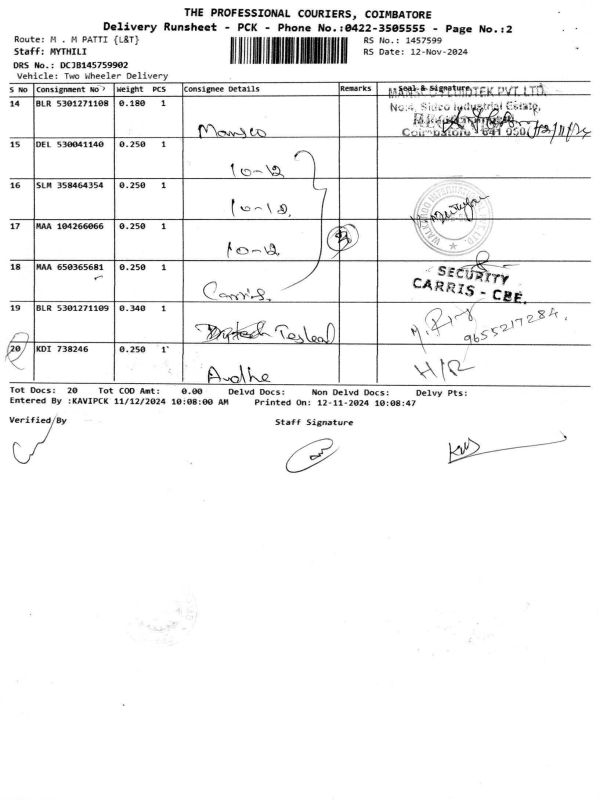 THE PROFESSIONAL COURIERS, COIMBATORE
Delivery Runsheet - PCK - Phone No.:0422-3505555 - Page No.:2
Route: M . M PATTI {L&T} RS No.: 1457599
Staff: MYTHILI RS Date: 12-Nov-2024
DRS No.: DCJB145759902
Vehicle: Two Wheeler Delivery
S No Consignment No Weight PCS Consignee Details Remarks Seal & Signature
14 BLR 5301271108 0.180 1 Mansco
PVT. LTD.
No:4, Sidco Industrial Estate,
Coimbatore - 641 050
15 DEL 530041140 0.250 1 10-12
16 SLM 358464354 0.250 1 10-12
17 MAA 104266066 0.250 1 10-12
18 MAA 650365681 0.250 1 Carris
SECURITY
CARRIS - CBE.
19 BLR 5301271109 0.340 1
9655217284.
20 KDI 738246 0.250 1 H/R
Tot Docs: 20 Tot COD Amt: 0.00 Delvd Docs: Non Delvd Docs: Delvy Pts:
Entered By :KAVIPCK 11/12/2024 10:08:00 AM Printed On: 12-11-2024 10:08:47
Verified By Staff Signature